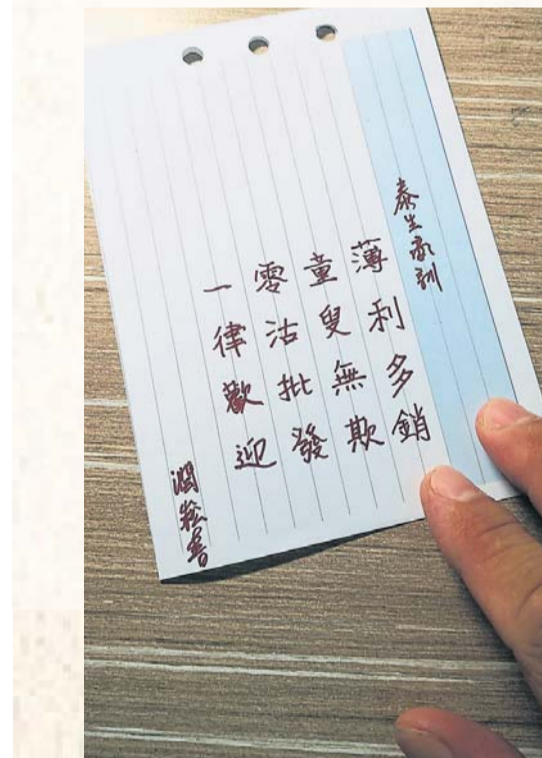 泰生家訓
薄利多銷
童叟無欺
零沽批發
一律歡迎
潤崧書